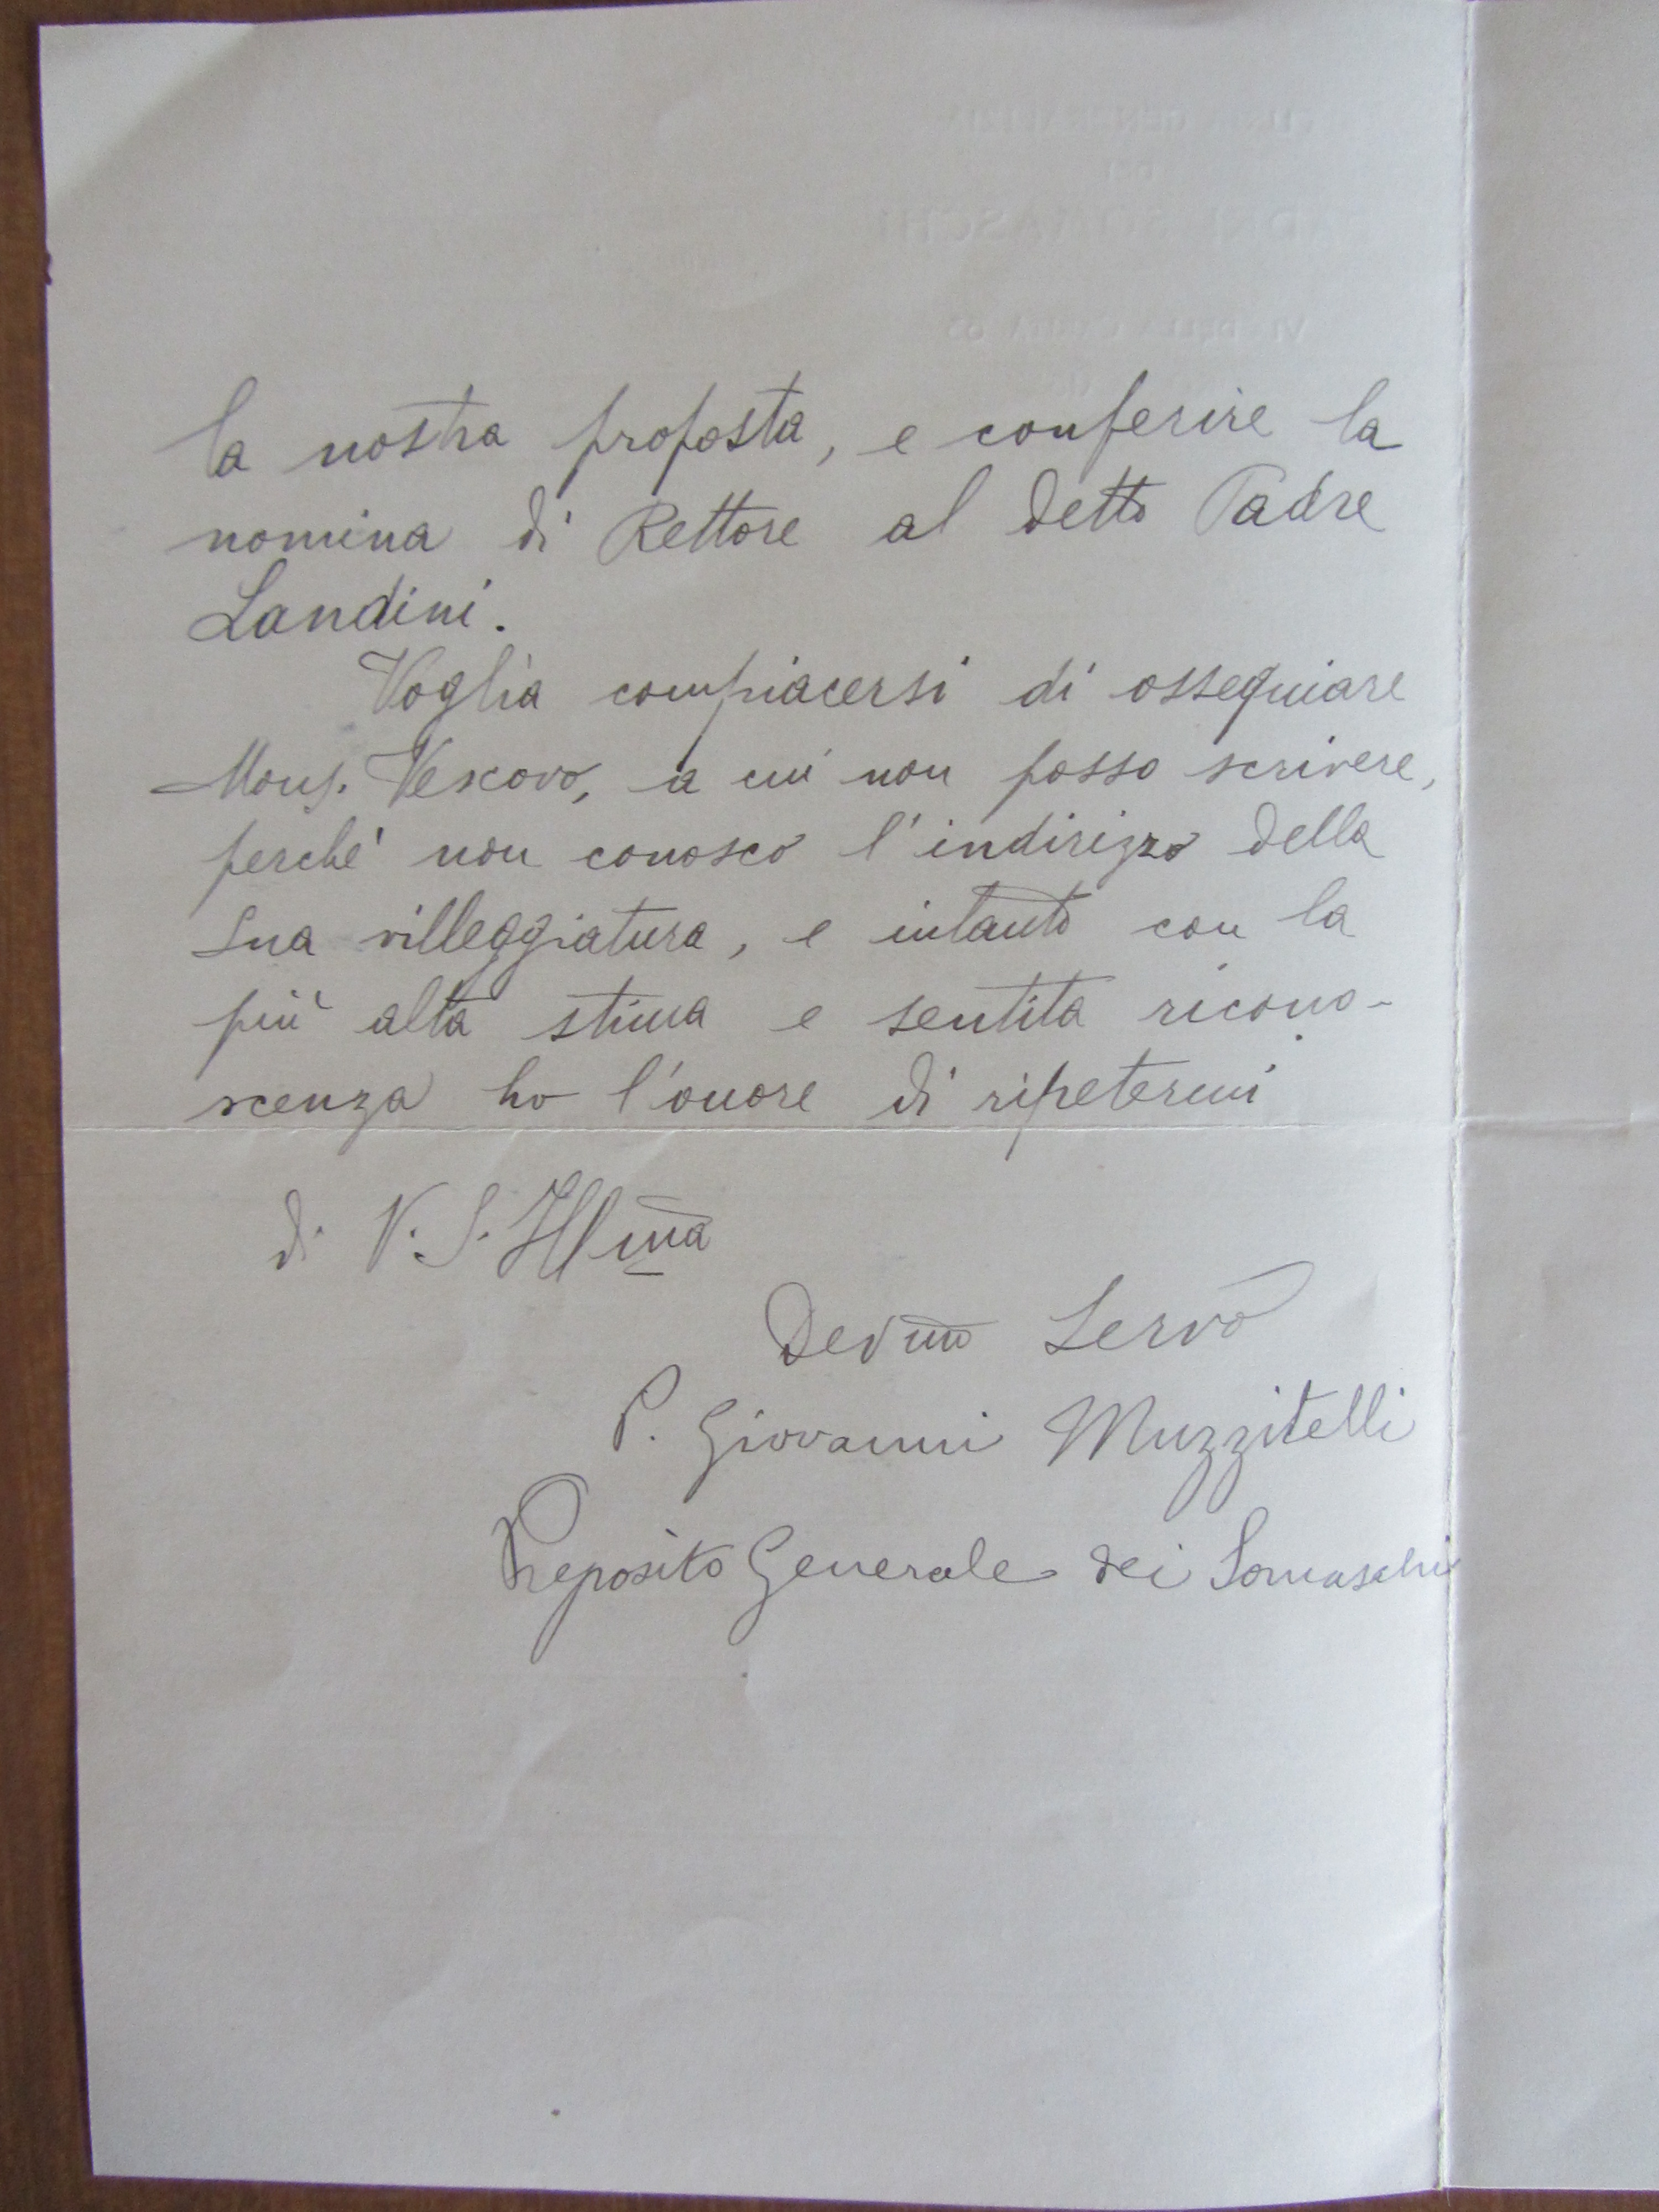 la nostra proposta, e conferire la
nomina di Rettore al detto Padre
Landini.
Voglia compiacersi di ossequiare
Mons. Vescovo, a cui non posso scrivere,
perchè non conosco l'indirizzo della
Sua villeggiatura, e intanto con la
più alta stima e sentita ricono-
scenza ho l'onore di ripetermi
di V. S. Illma
Devmo Servo
P. Giovanni Muzzitelli
Preposito Generale dei Somaschi